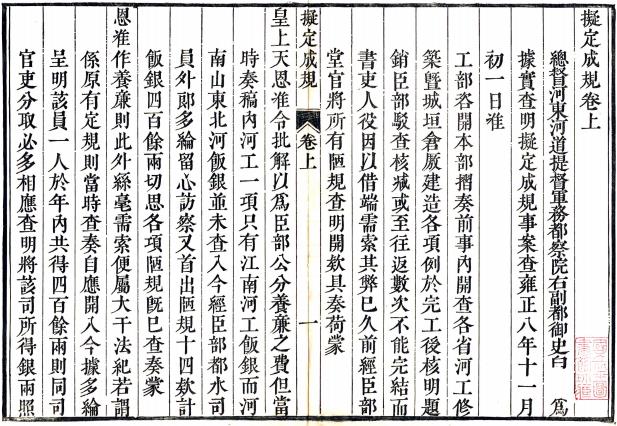 擬定成規卷上
總督河東河道提督軍務都察院右副都御史白 爲
據實查明擬定成規事案查雍正八年十一月
初一日准
工部咨開本部摺奏前事內開查各省河工修
築暨城垣倉厫建造各項例於完工後核明題
銷臣部駁查核減或至往返數次不能完結而
書吏人役因以借端需索其弊已久前經臣部
堂官將所有陋規查明開欵具奏荷蒙
擬定成規
卷上
一
皇上天恩准令批解以爲臣部公分養亷之費但當
時奏稿內河工一項只有江南河工飯銀而河
南山東北河飯銀並未查入今經臣部都水司
員外郎多綸留心訪察又首出陋規十四欵計
飯銀四百餘兩切思各項陋規旣已查奏蒙
恩准作養亷則此外絲毫需索便屬大干法紀若謂
係原有定規則當時查奏自應開入今據多綸
呈明該員一人於年內共得四百餘兩則同司
官吏分取必多相應查明將該司所得銀兩照